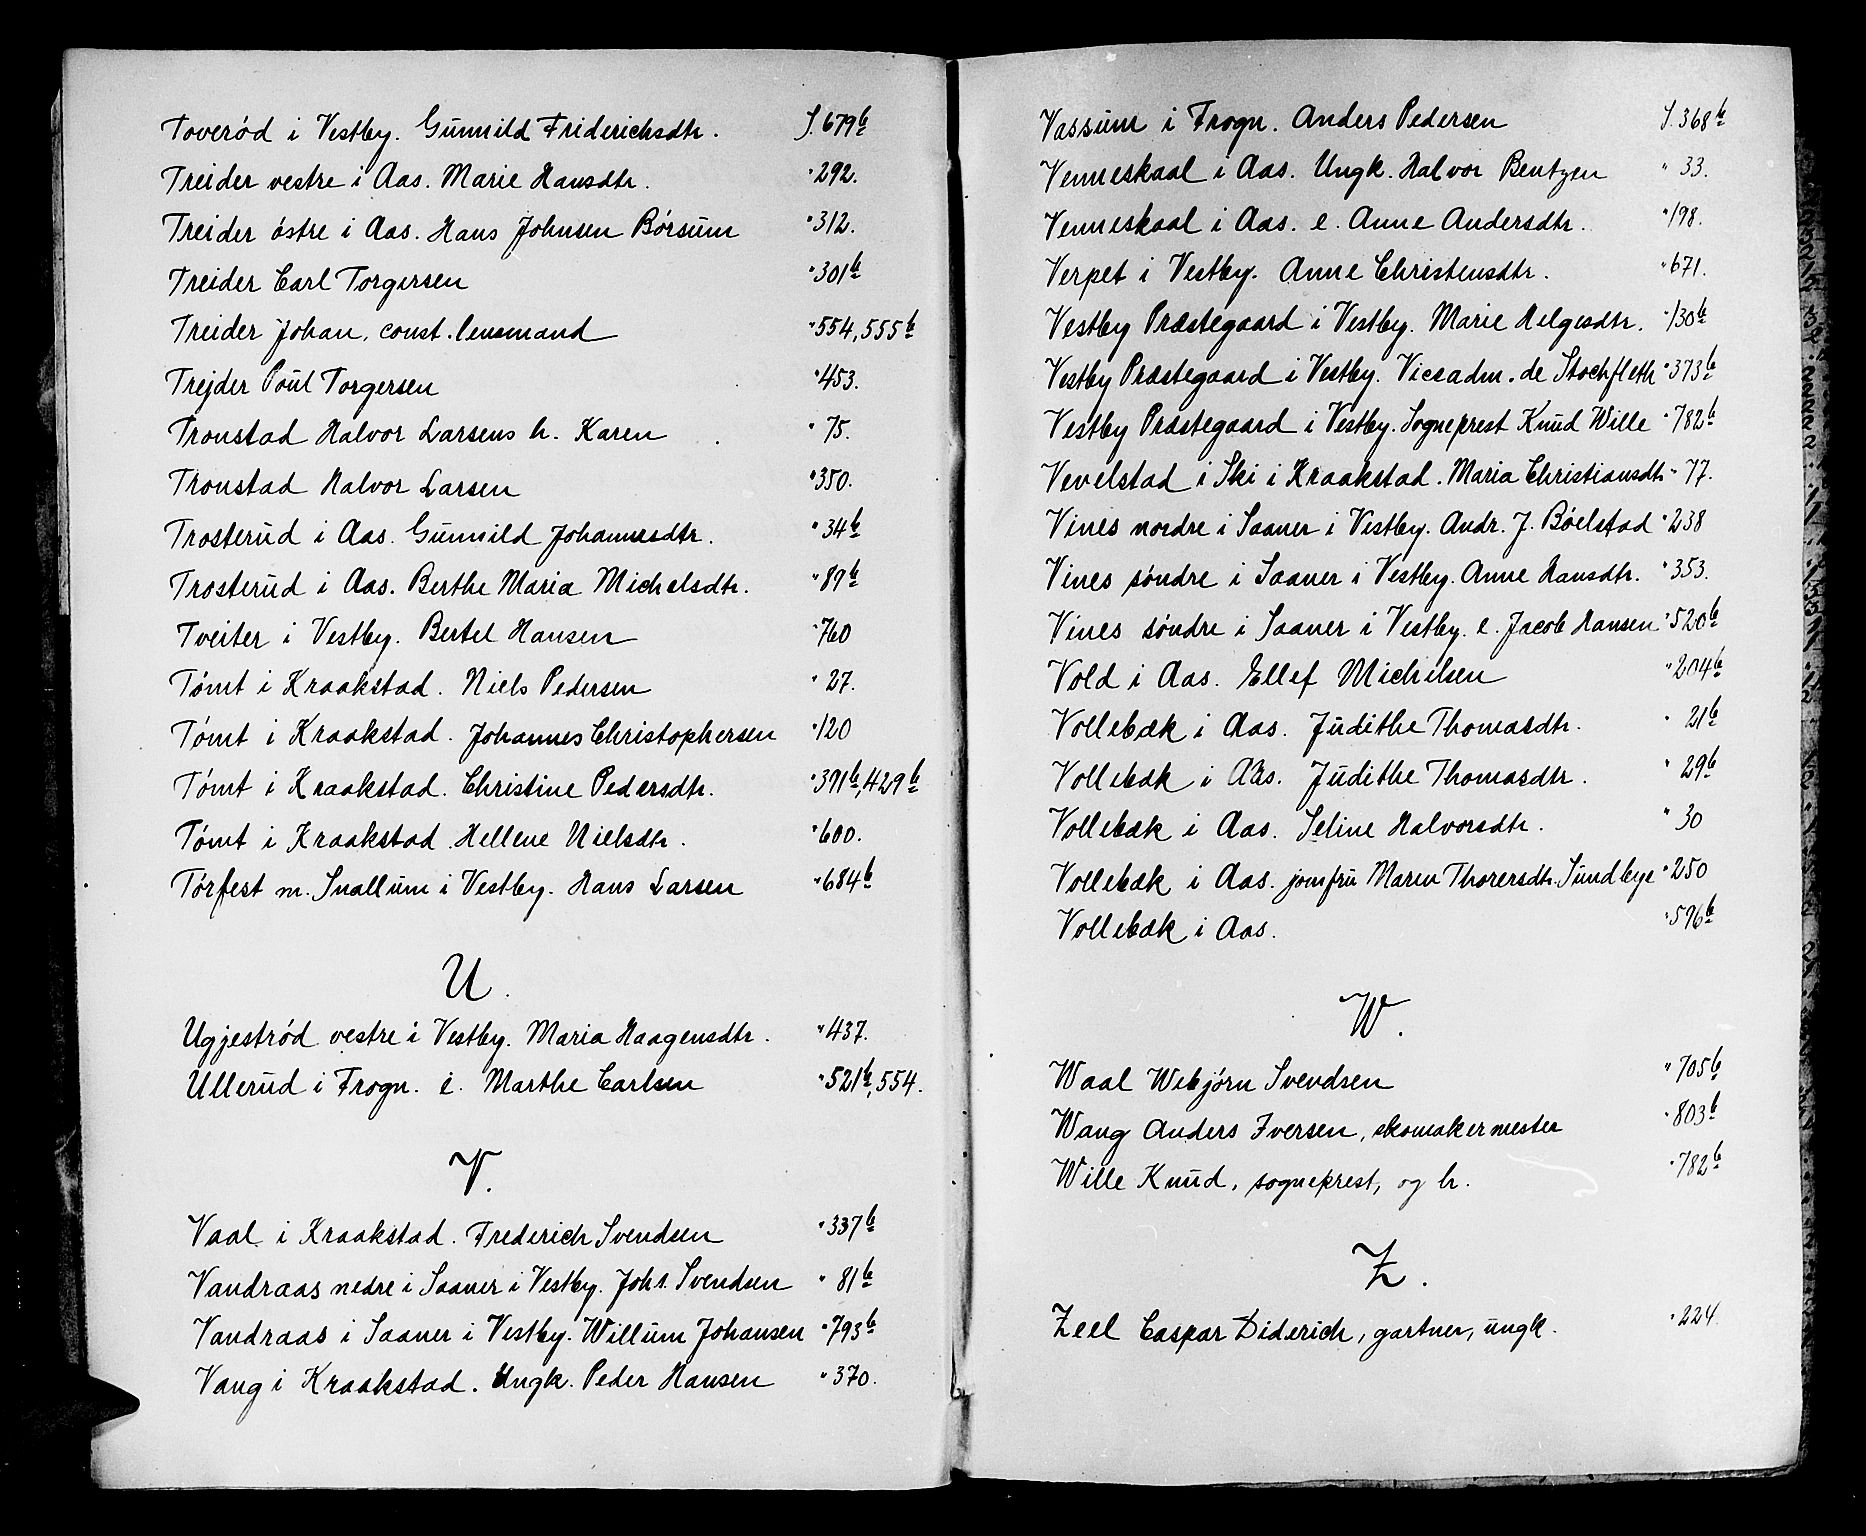 Toverød i Vestby. Gunnild Friderichsdtr. S. 679b
Treider vestre i Aas. Marie Hansdtr. " 292.
Treider østre i Aas. Hans Johnsen Børsum " 312.
Treider Carl Torgersen " 301b
Treider Johan, const. lensmand " 554, 555b
Trejder Poul Torgersen " 453.
Tronstad Halvor Larsens h. Karen " 75.
Tronstad Halvor Larsen " 350.
Trosterud i Aas. Gunnild Johannesdtr. " 34b
Trosterud i Aas. Berthe Maria Michelsdtr. " 89b
Tveiter i Vestby. Bertel Hansen " 760
Tømt i Kraakstad. Niels Pedersen " 27.
Tømt i Kraakstad. Johannes Christophersen " 120
Tømt i Kraakstad. Christine Pedersdtr. " 391b, 429b
Tømt i Kraakstad. Hellene Nielsdtr. " 600.
Tørfest m. Snallum i Vestby. Hans Larsen " 684b
U.
Ugjestrød vestre i Vestby. Maria Haagensdtr. " 437.
Ullerud i Frogn. e. Marthe Carlsen " 521b, 554.
V.
Vaal i Kraakstad. Frederich Svendsen " 337b
Vandraas nedre i Saaner i Vestby. Johs. Svendsen " 81b
Vandraas i Saaner i Vestby. Willum Johansen " 793b
Vang i Kraakstad. Ungk. Peder Hansen " 370.
Vassum i Frogn. Anders Pedersen S. 368b
Venneskaal i Aas. Ungk. Halvor Bentzen " 33.
Venneskaal i Aas. e. Anne Andersdtr. " 198.
Verpet i Vestby. Anne Christensdtr. " 671.
Vestby Præstegaard i Vestby. Marie Helgesdtr. " 130b
Vestby Præstegaard i Vestby. Viceadm. de Stochfleth " 373b
Vestby Præstegaard i Vestby. Sogneprest Knud Wille " 782b
Vevelstad i Ski i Kraakstad. Maria Christiansdtr " 77.
Vines nordre i Saaner i Vestby. Andr. J. Bøelstad " 238
Vines søndre i Saaner i Vestby. Anne Hansdtr. " 353.
Vines søndre i Saaner i Vestby. e. Jacob Hansen " 520b
Vold i Aas. Ellef Michelsen " 204b
Vollebæk i Aas. Judithe Thomasdtr. " 21b
Vollebæk i Aas. Judithe Thomasdtr. " 29b
Vollebæk i Aas. Seline Halvorsdtr. " 30
Vollebæk i Aas. jomfru Maren Thorersdtr. Sundbye " 250
Vollebæk i Aas. " 596b
W.
Waal Webjørn Svendsen " 705b
Wang Anders Iversen, skomakermester " 803b
Wille Knud, sogneprest, og h. " 782b
Z.
Zeel Caspar Diderich, gartner, ungk. " 224.